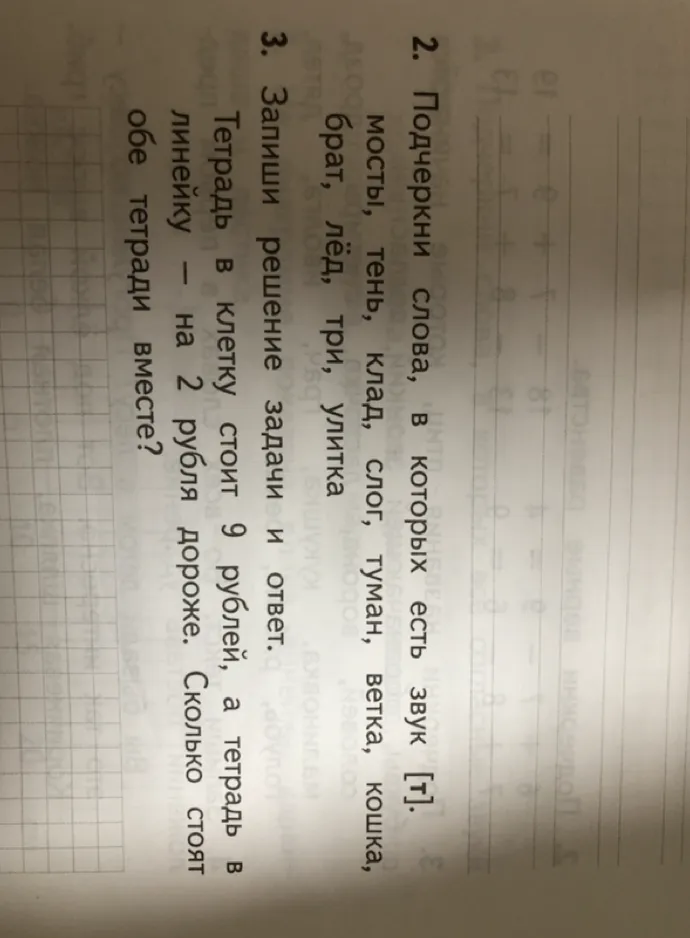 2. Подчеркни слова, в которых есть звук [т].
мосты, тень, клад, слог, туман, ветка, кошка,
брат, лёд, три, улитка
3. Запиши решение задачи и ответ.
Тетрадь в клетку стоит 9 рублей, а тетрадь в
линейку — на 2 рубля дороже. Сколько стоят
обе тетради вместе?